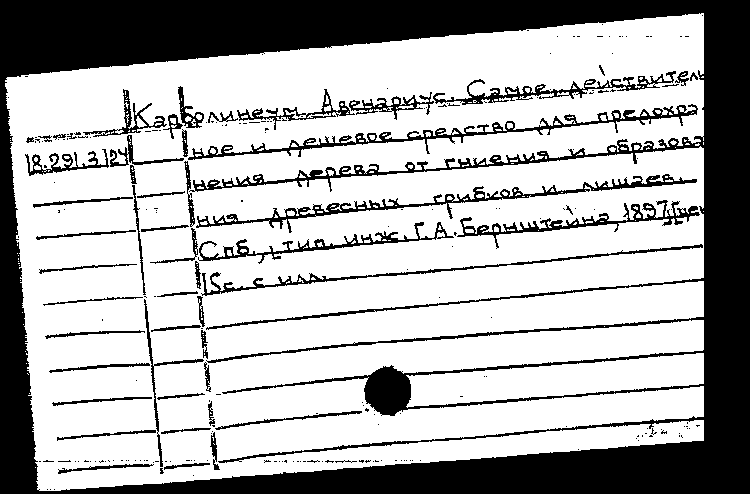 Карболинеум Авенариус. Самое действитель
18.291.3.124 ное и дешевое средство для предохра-
нения дерева от гниения и образова
ния древесных грибков и лишаев.
Спб., тип. инж. Г.А. Бернштейна, 1897
15с. с илл.